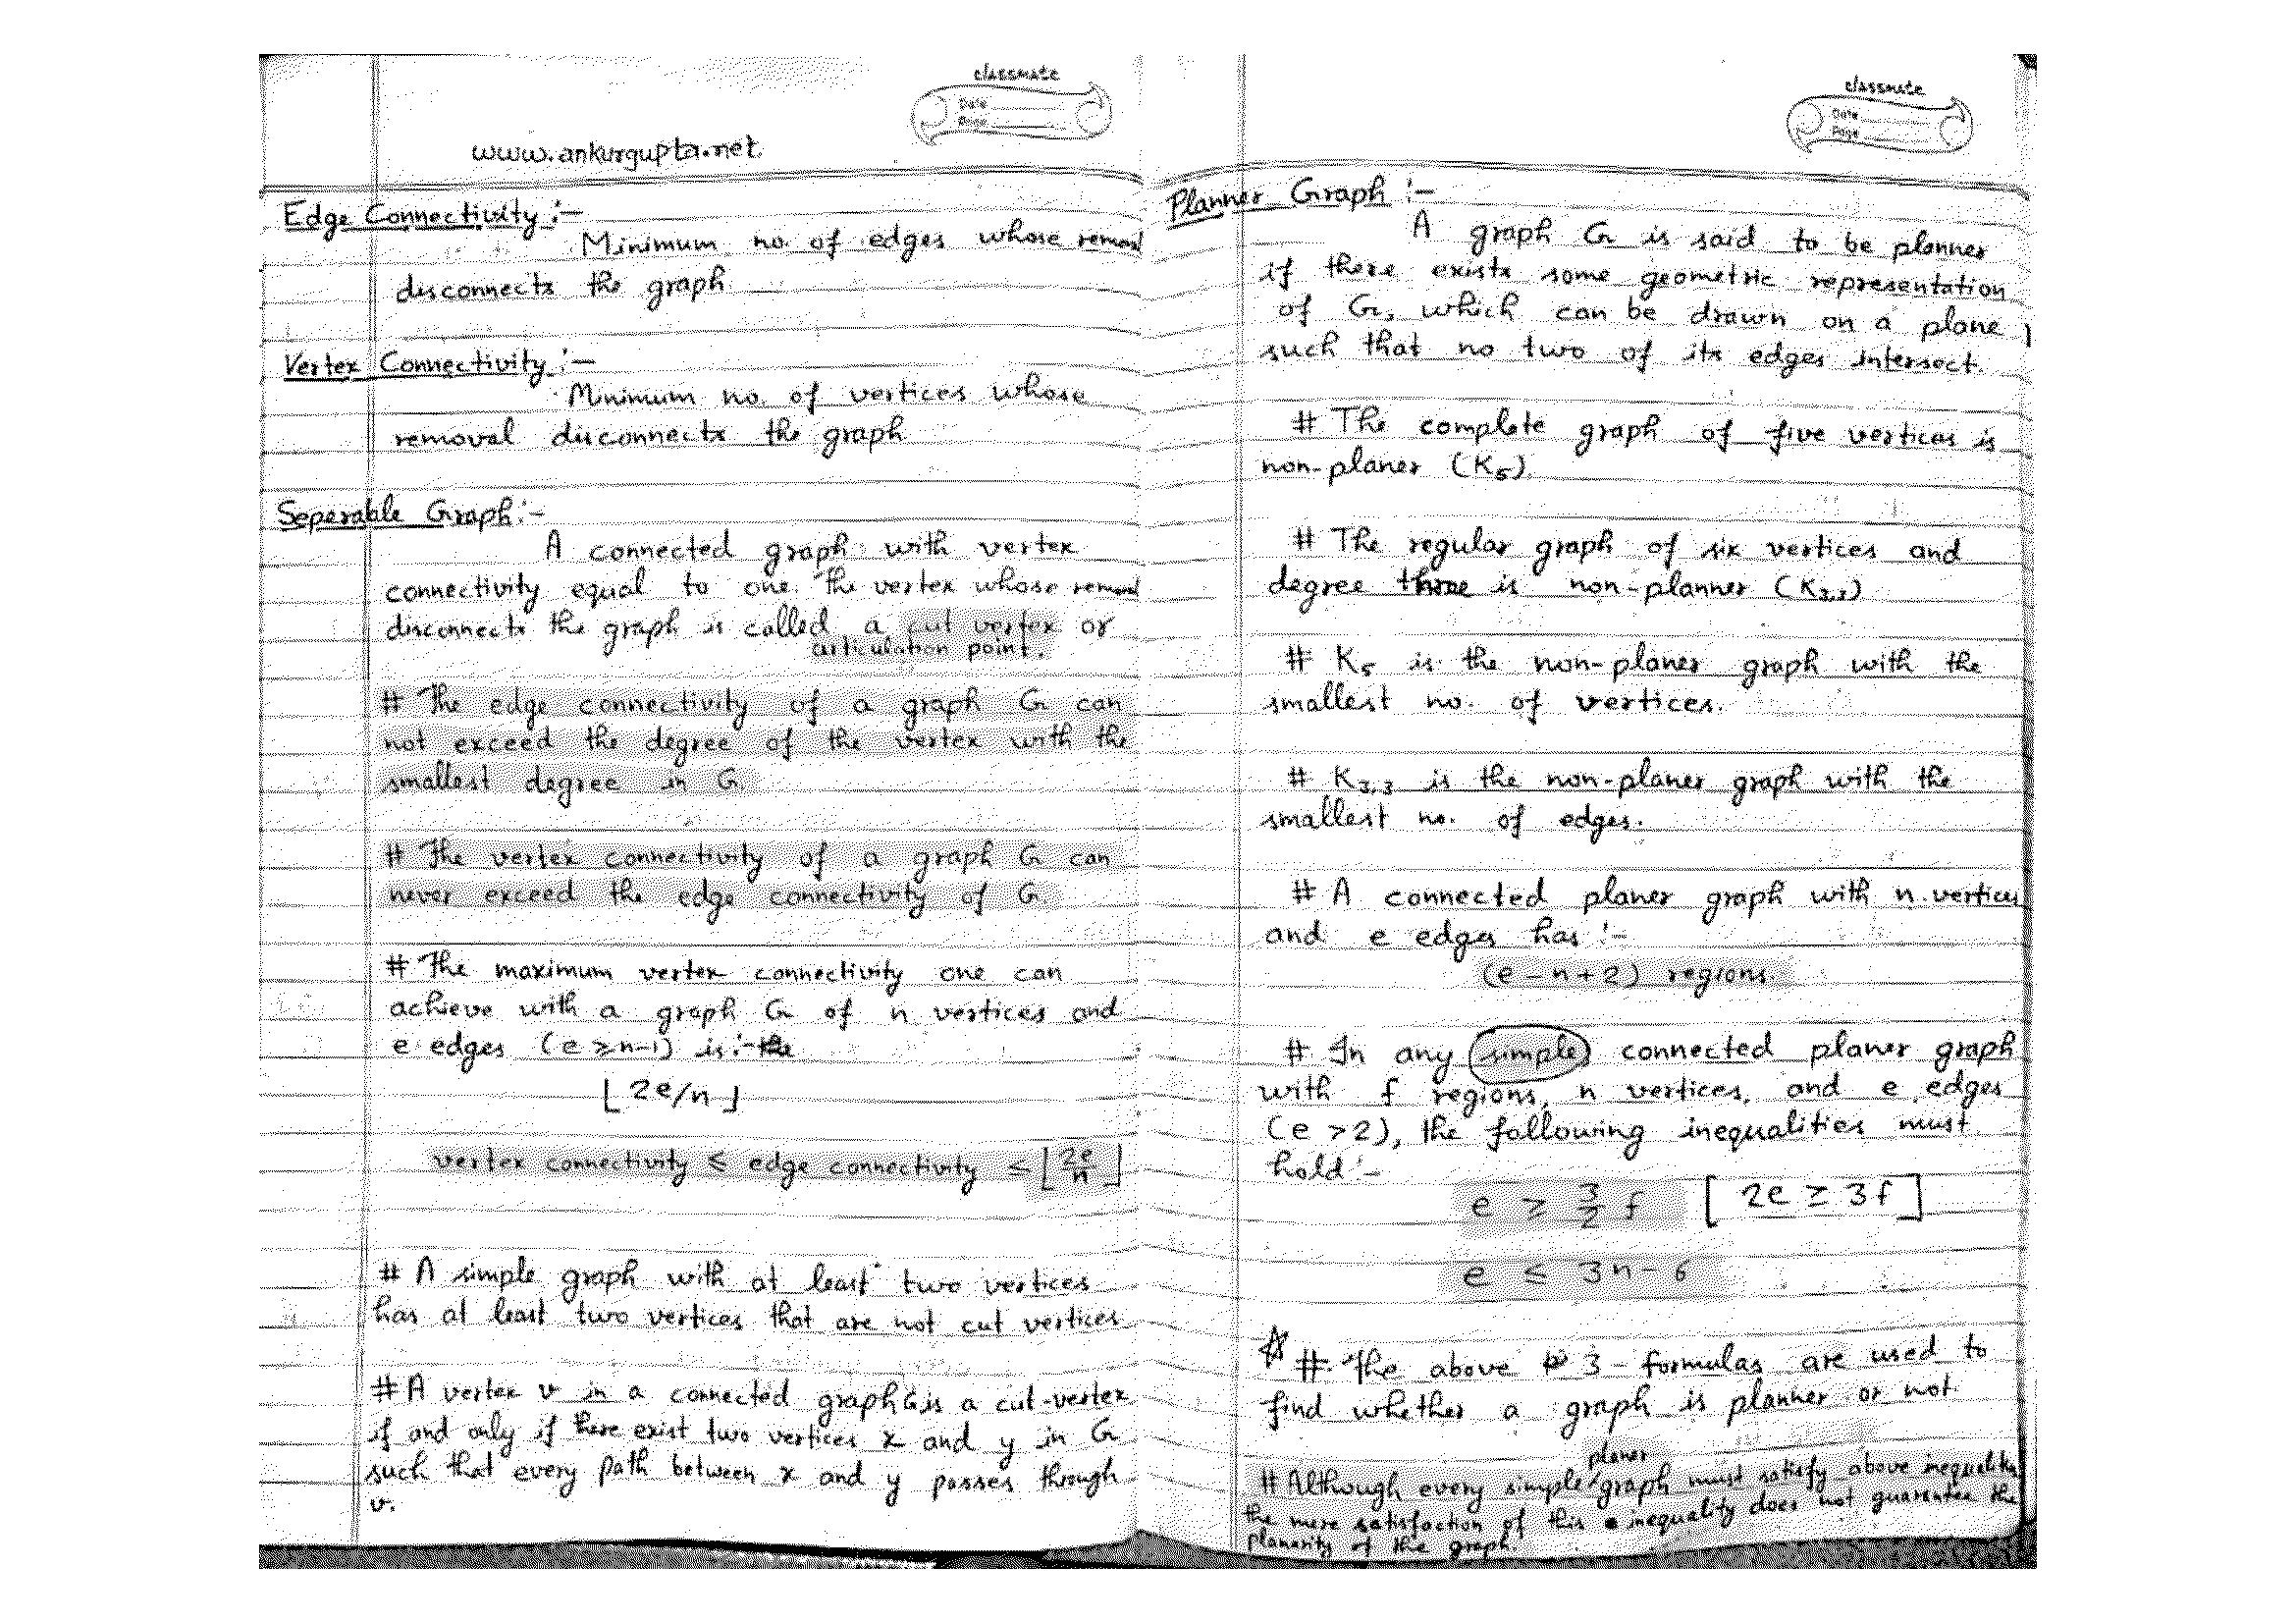 classmate
Date
Page
www.ankurgupta.net
Edge Connectivity :-
Minimum no. of edges whose removal
disconnects the graph
Vertex Connectivity :-
Minimum no. of vertices whose
removal disconnects the graph
Seperable Graph :-
A connected graph with vertex
connectivity equal to one. The vertex whose removal
disconnects the graph is called a cut vertex or
articulation point.
# The edge connectivity of a graph G can
not exceed the degree of the vertex with the
smallest degree in G.
# The vertex connectivity of a graph G can
never exceed the edge connectivity of G.
# The maximum vertex connectivity one can
achieve with a graph G of n vertices and
e edges (e ≥ n-1) is :- the
⌊ 2e/n ⌋
vertex connectivity ≤ edge connectivity ≤ ⌊2e/n⌋
# A simple graph with at least two vertices
has at least two vertices that are not cut vertices
# A vertex v in a connected graph G is a cut-vertex
if and only if there exist two vertices x and y in G
such that every path between x and y passes through
v.
classmate
Date
Page
Planner Graph :-
A graph G is said to be planner
if there exists some geometric representation
of G, which can be drawn on a plane
such that no two of its edges intersect.
# The complete graph of five vertices is
non-planer (K5).
# The regular graph of six vertices and
degree three is non-planner (K3,3)
# K5 is the non-planer graph with the
smallest no. of vertices.
# K3,3 is the non-planer graph with the
smallest no. of edges.
# A connected planer graph with n vertices
and e edges has :-
(e - n + 2) regions.
# In any simple connected planer graph
with f regions, n vertices, and e edges
(e > 2), the following inequalities must
hold :-
e ≥ 3/2 f [ 2e ≥ 3f ]
e ≤ 3n - 6
# The above 3 - formulas are used to
find whether a graph is planner or not.
planer
# Although every simple graph must satisfy above inequalities
the mere satisfaction of this inequality does not guarantee the
planarity of the graph.